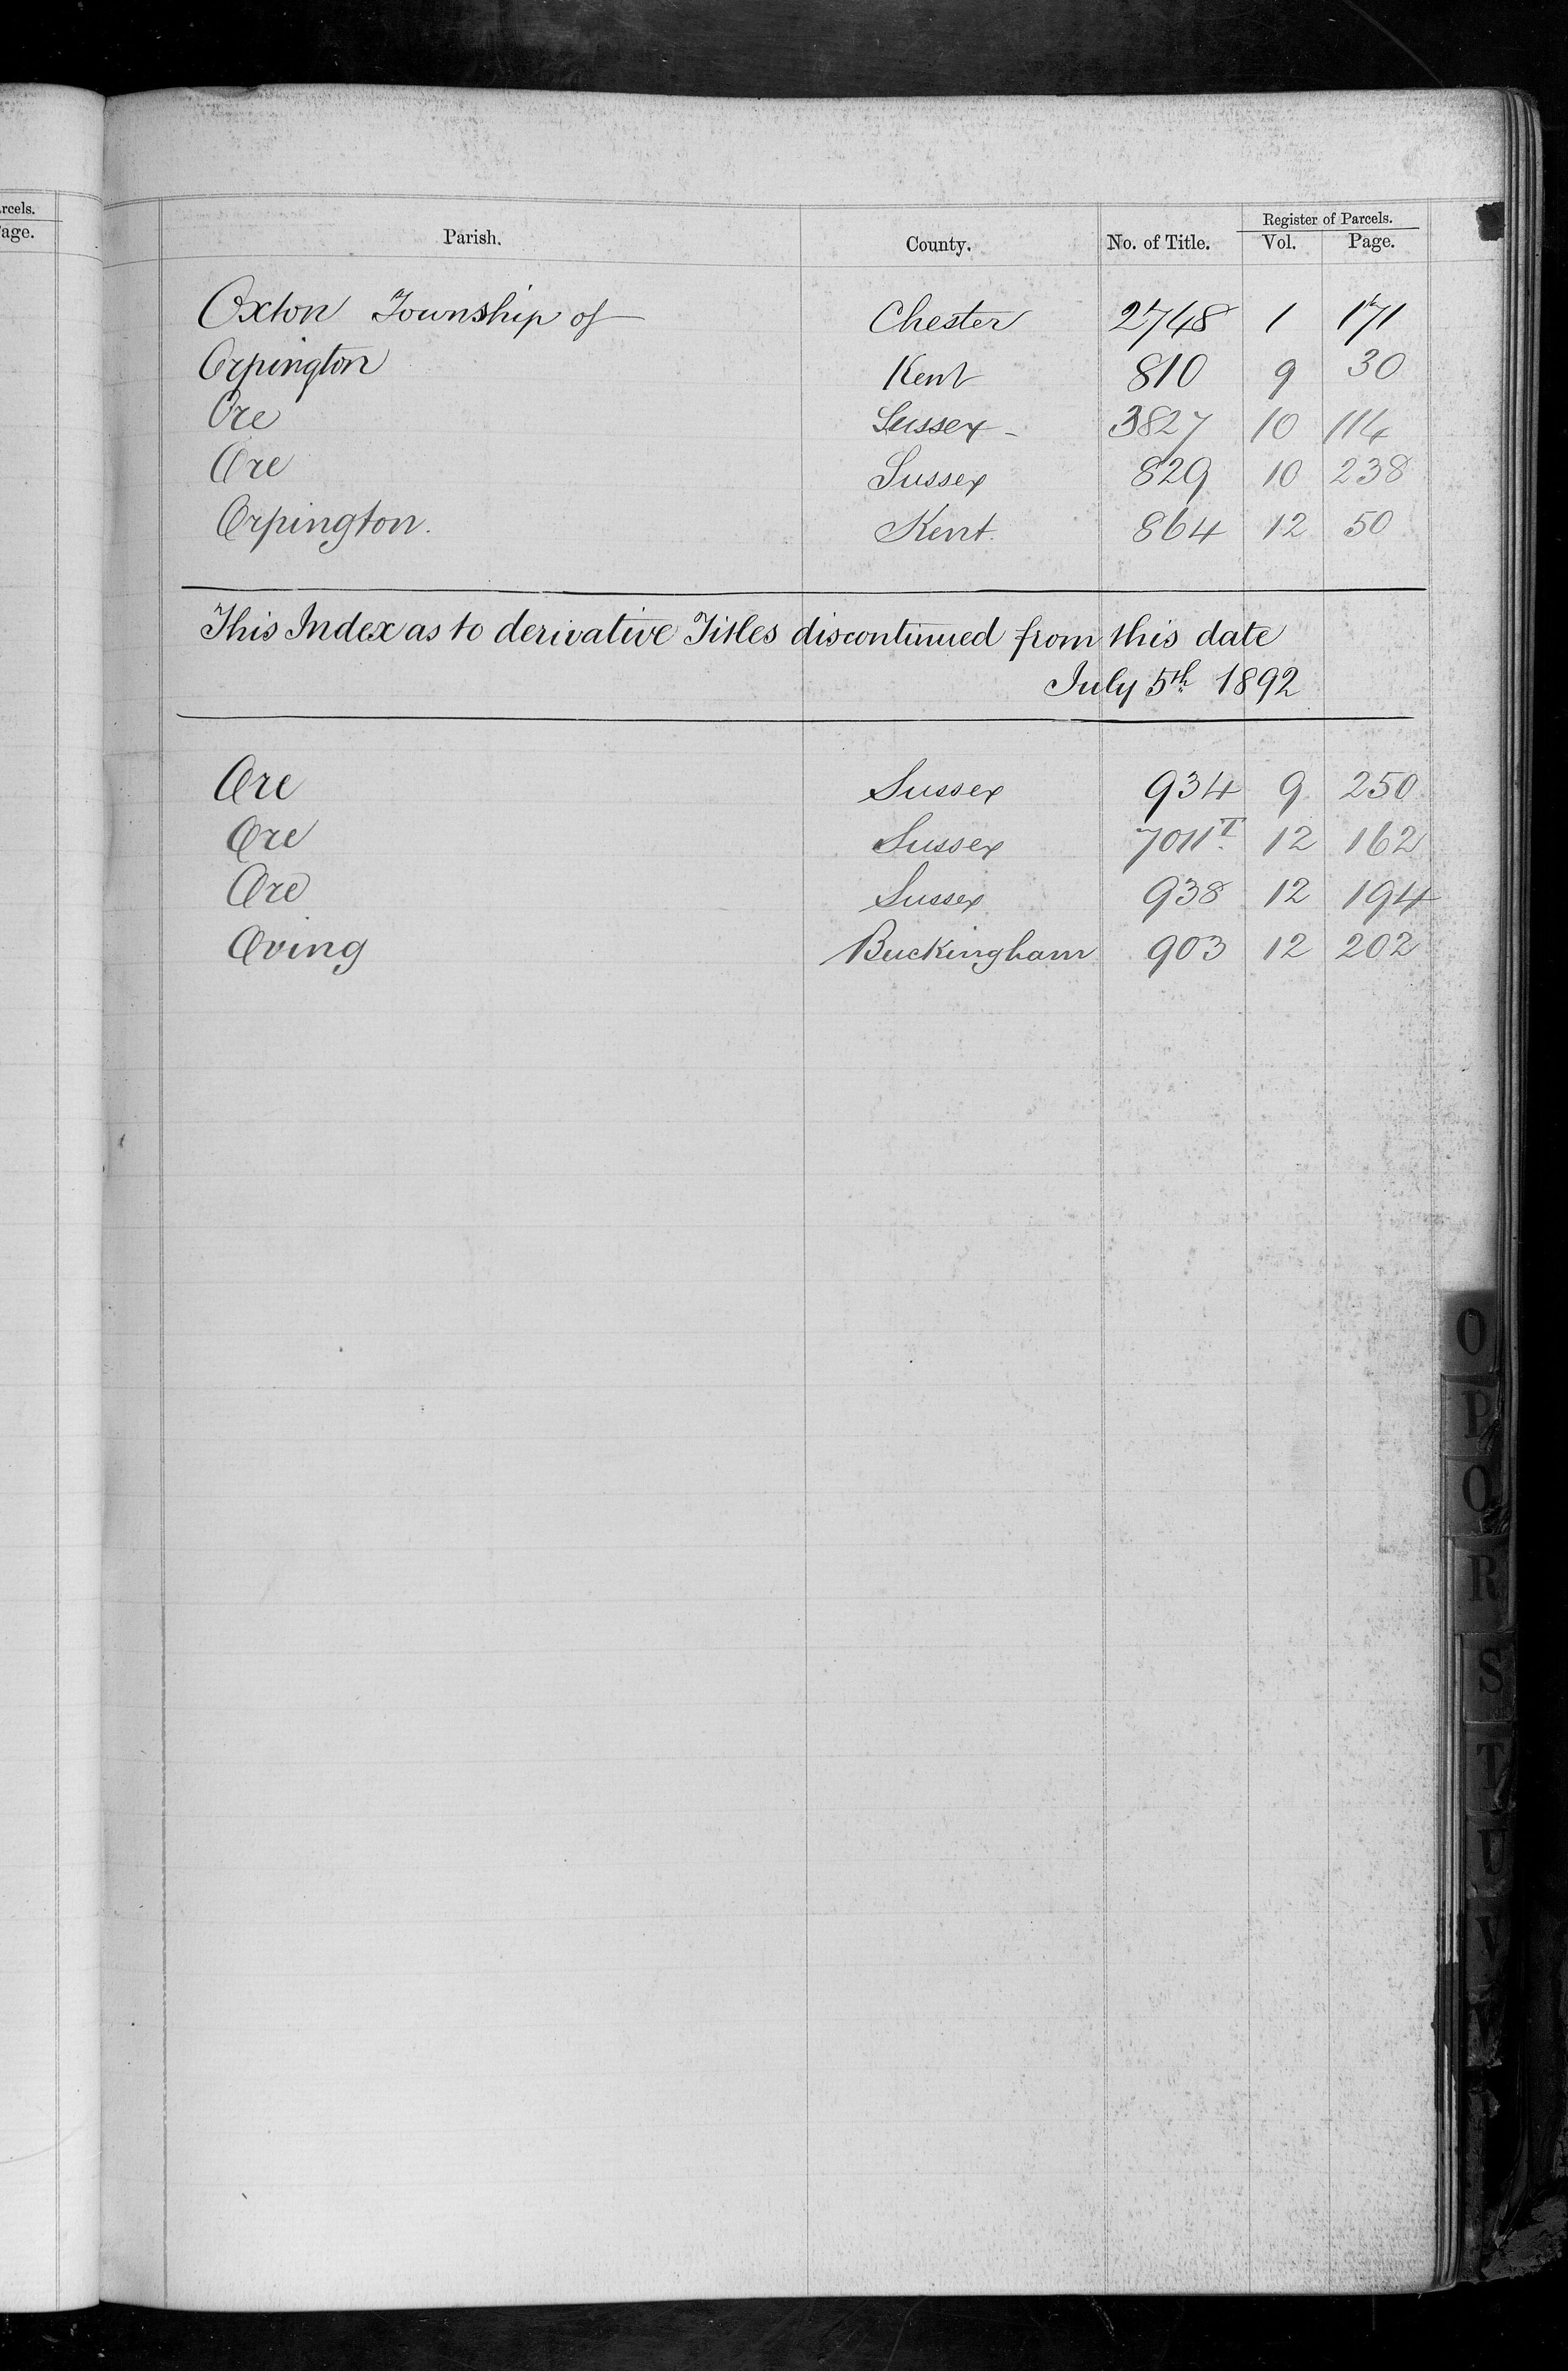 rcels.
age.
Register of Parcels.
Parish. County. No. of Title. Vol. Page.
Oxton Township of Chester 2748 1 171
Orpington Kent 810 9 30
Ore Sussex - 3827 10 114
Ore Sussex 829 10 238
Orpington. Kent. 864 12 50
This Index as to derivative Titles discontinued from this date
July 5th 1892
Ore Sussex 934 9 250
Ore Sussex 7011T. 12 162
Ore Sussex 938 12 194
Oving Buckingham 903 12 202
O
P
Q
R
S
T
U
V